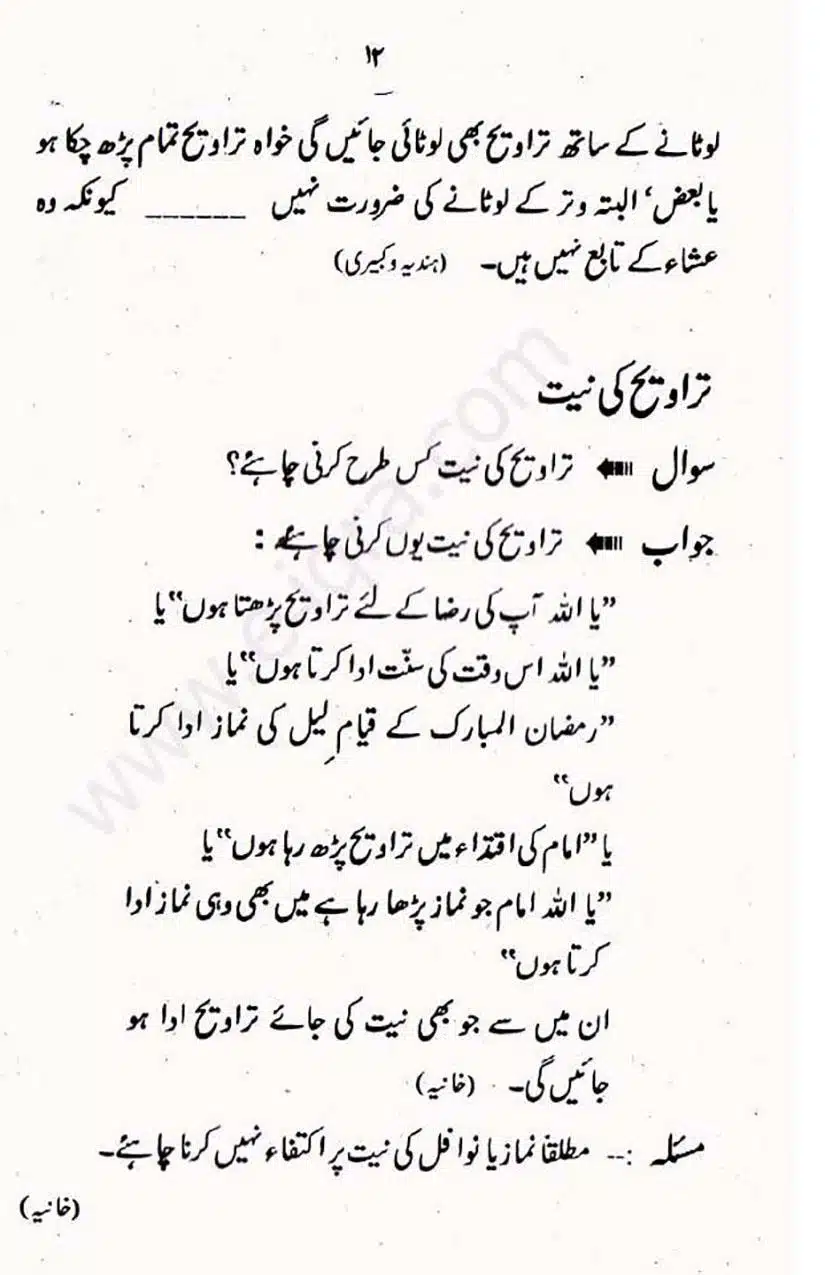 ۱۲
لوٹانے کے ساتھ تراویح بھی لوٹائی جائیں گی خواہ تراویح تمام پڑھ چکا ہو
یا بعض، البتہ وتر کے لوٹانے کی ضرورت نہیں ______ کیونکہ وہ
عشاء کے تابع نہیں ہیں۔ (ہندیہ وکبیری)
تراویح کی نیت
سوال تراویح کی نیت کس طرح کرنی چاہئے؟
جواب تراویح کی نیت یوں کرنی چاہئے :
”یا اللہ آپ کی رضا کے لئے تراویح پڑھتا ہوں“ یا
”یا اللہ اس وقت کی سنّت ادا کرتا ہوں“ یا
”رمضان المبارک کے قیامِ لیل کی نماز ادا کرتا
ہوں“
یا ”امام کی اقتداء میں تراویح پڑھ رہا ہوں“ یا
”یا اللہ امام جو نماز پڑھا رہا ہے میں بھی وہی نماز ادا
کرتا ہوں“
ان میں سے جو بھی نیت کی جائے تراویح ادا ہو
جائیں گی۔ (خانیہ)
مسئلہ :-- مطلقاً نماز یا نوافل کی نیت پر اکتفاء نہیں کرنا چاہئے۔
(خانیہ)
www.e-iqra.com